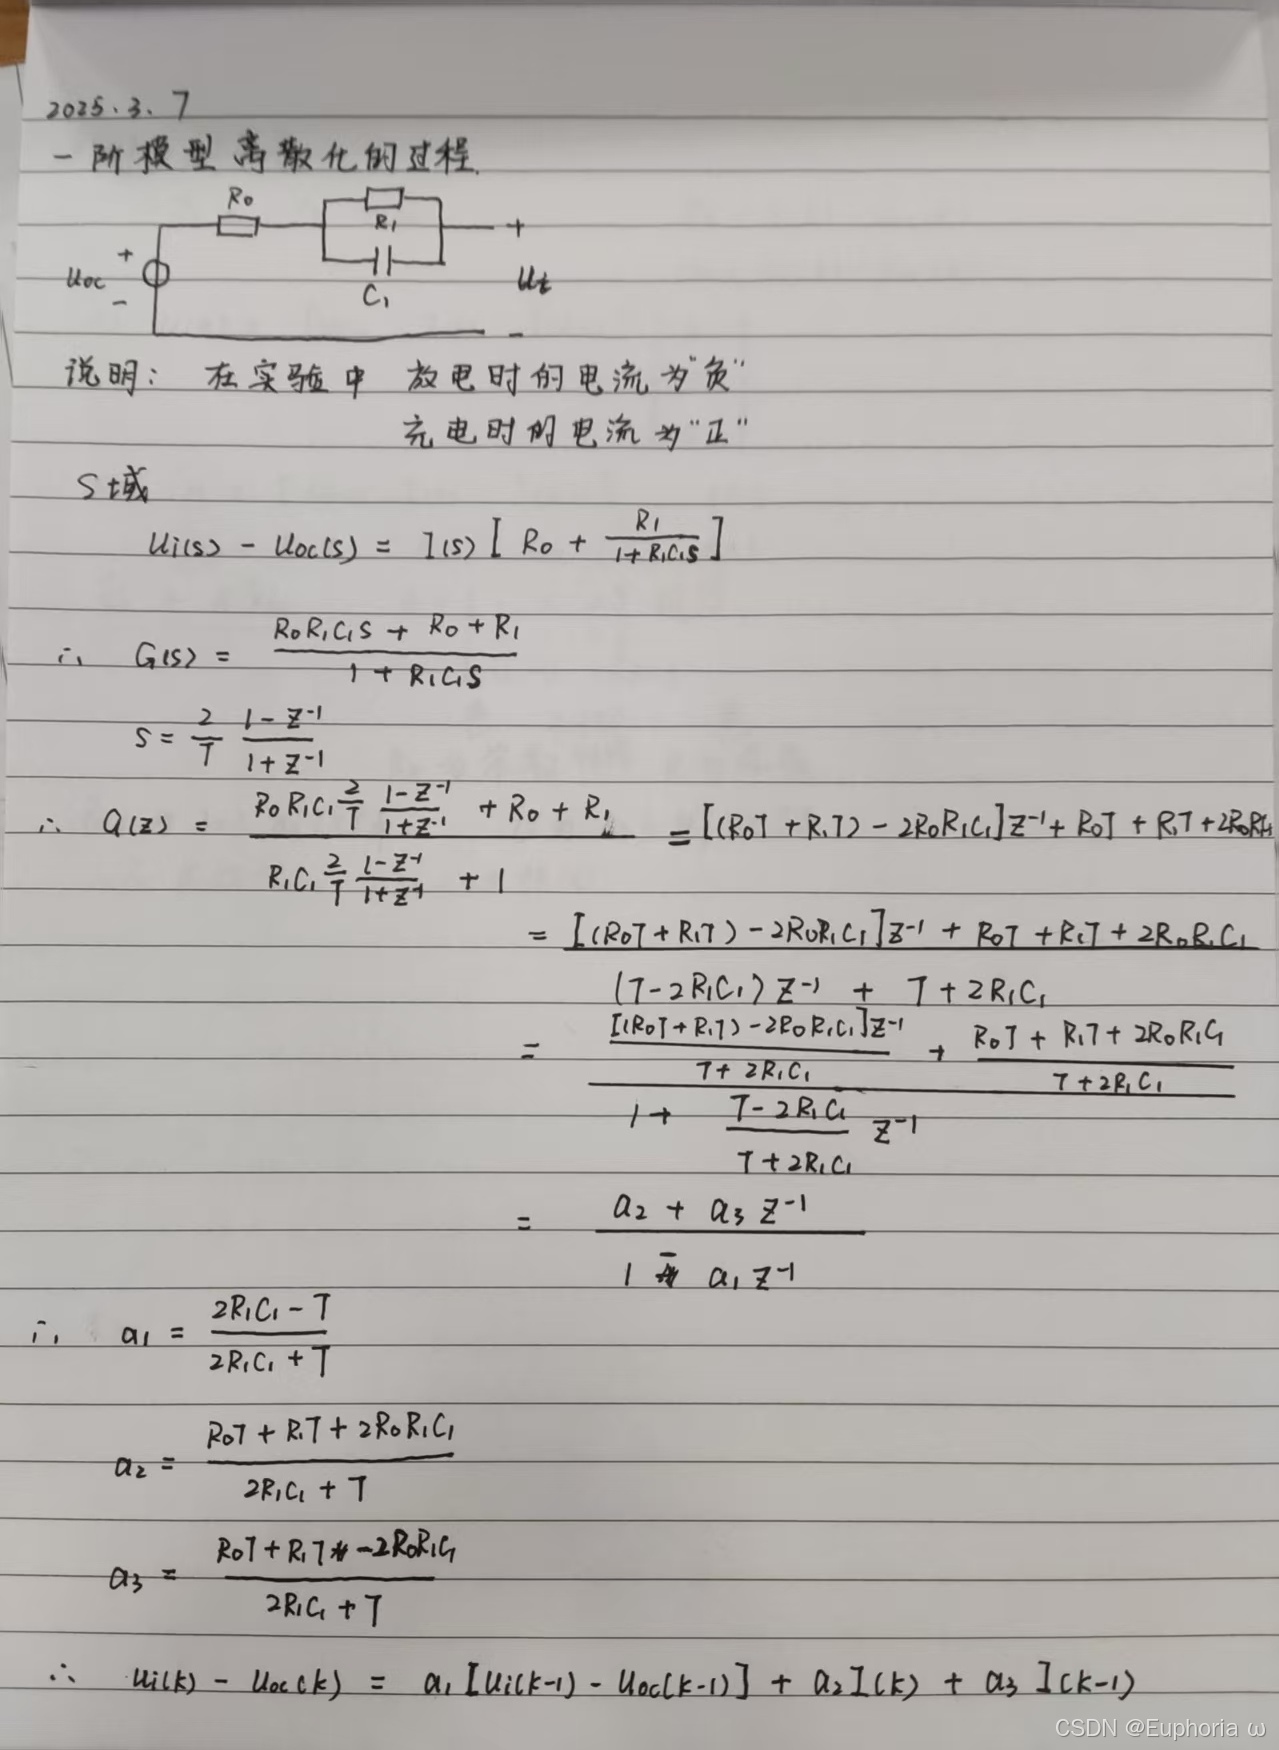 2025.3.7
一阶模型离散化的过程.
R0
R1
C1
+
Uoc
-
+
Ut
-
说明: 在实验中 放电时的电流为"负"
充电时的电流为"正"
S域
Ui(s) - Uoc(s) = I(s) [ R0 + R1/(1+R1C1S) ]
∴ G(s) = (R0R1C1S + R0 + R1)/(1 + R1C1S)
S = 2/T (1-Z⁻¹)/(1+Z⁻¹)
∴ G(z) = (R0R1C1 2/T (1-Z⁻¹)/(1+Z⁻¹) + R0 + R1)/(R1C1 2/T (1-Z⁻¹)/(1+Z⁻¹) + 1) = [(R0T + R1T) - 2R0R1C1]Z⁻¹ + R0T + R1T + 2R0R1
= ([(R0T + R1T) - 2R0R1C1]Z⁻¹ + R0T + R1T + 2R0R1C1)/((T-2R1C1)Z⁻¹ + T + 2R1C1)
= ([(R0T+R1T) - 2R0R1C1]Z⁻¹/(T+2R1C1) + (R0T + R1T + 2R0R1C1)/(T+2R1C1))/(1 + (T-2R1C1)/(T+2R1C1) Z⁻¹)
= (a2 + a3 Z⁻¹)/(1 - a1 Z⁻¹)
∴ a1 = (2R1C1 - T)/(2R1C1 + T)
a2 = (R0T + R1T + 2R0R1C1)/(2R1C1 + T)
a3 = (R0T + R1T - 2R0R1C1)/(2R1C1 + T)
∴ Ui(k) - Uoc(k) = a1 [Ui(k-1) - Uoc(k-1)] + a2 I(k) + a3 I(k-1)
CSDN @Euphoria ω